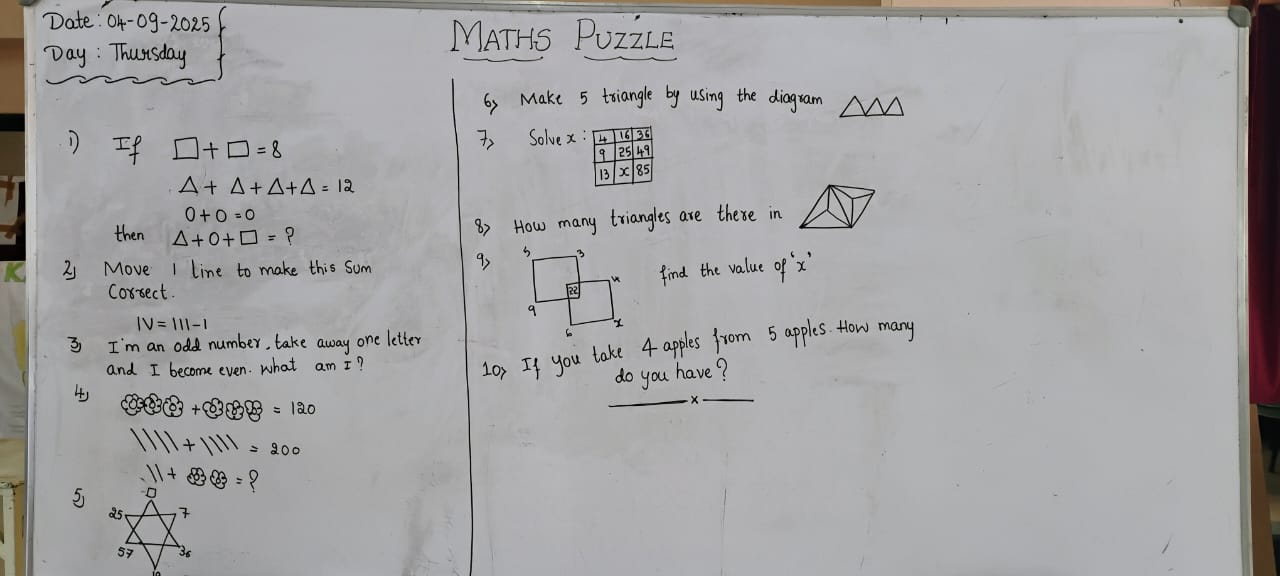 Date: 04-09-2025
Day : Thursday
MATHS PUZZLE
1) If □ + □ = 8
△ + △ + △ + △ = 12
O + O = 0
then △ + O + □ = ?
2) Move 1 line to make this Sum
Correct.
IV = III - I
3) I'm an odd number, take away one letter
and I become even. What am I?
4) + = 120
\\\\ + \\\\ = 200
\\ + = ?
5) □
25 7
57 36
6) Make 5 triangle by using the diagram △△△
7) Solve x : 4 16 36
9 25 49
13 x 85
8) How many triangles are there in
9) 5 3
22 4 find the value of 'x'
9
6 x
10) If you take 4 apples from 5 apples. How many
do you have?
x